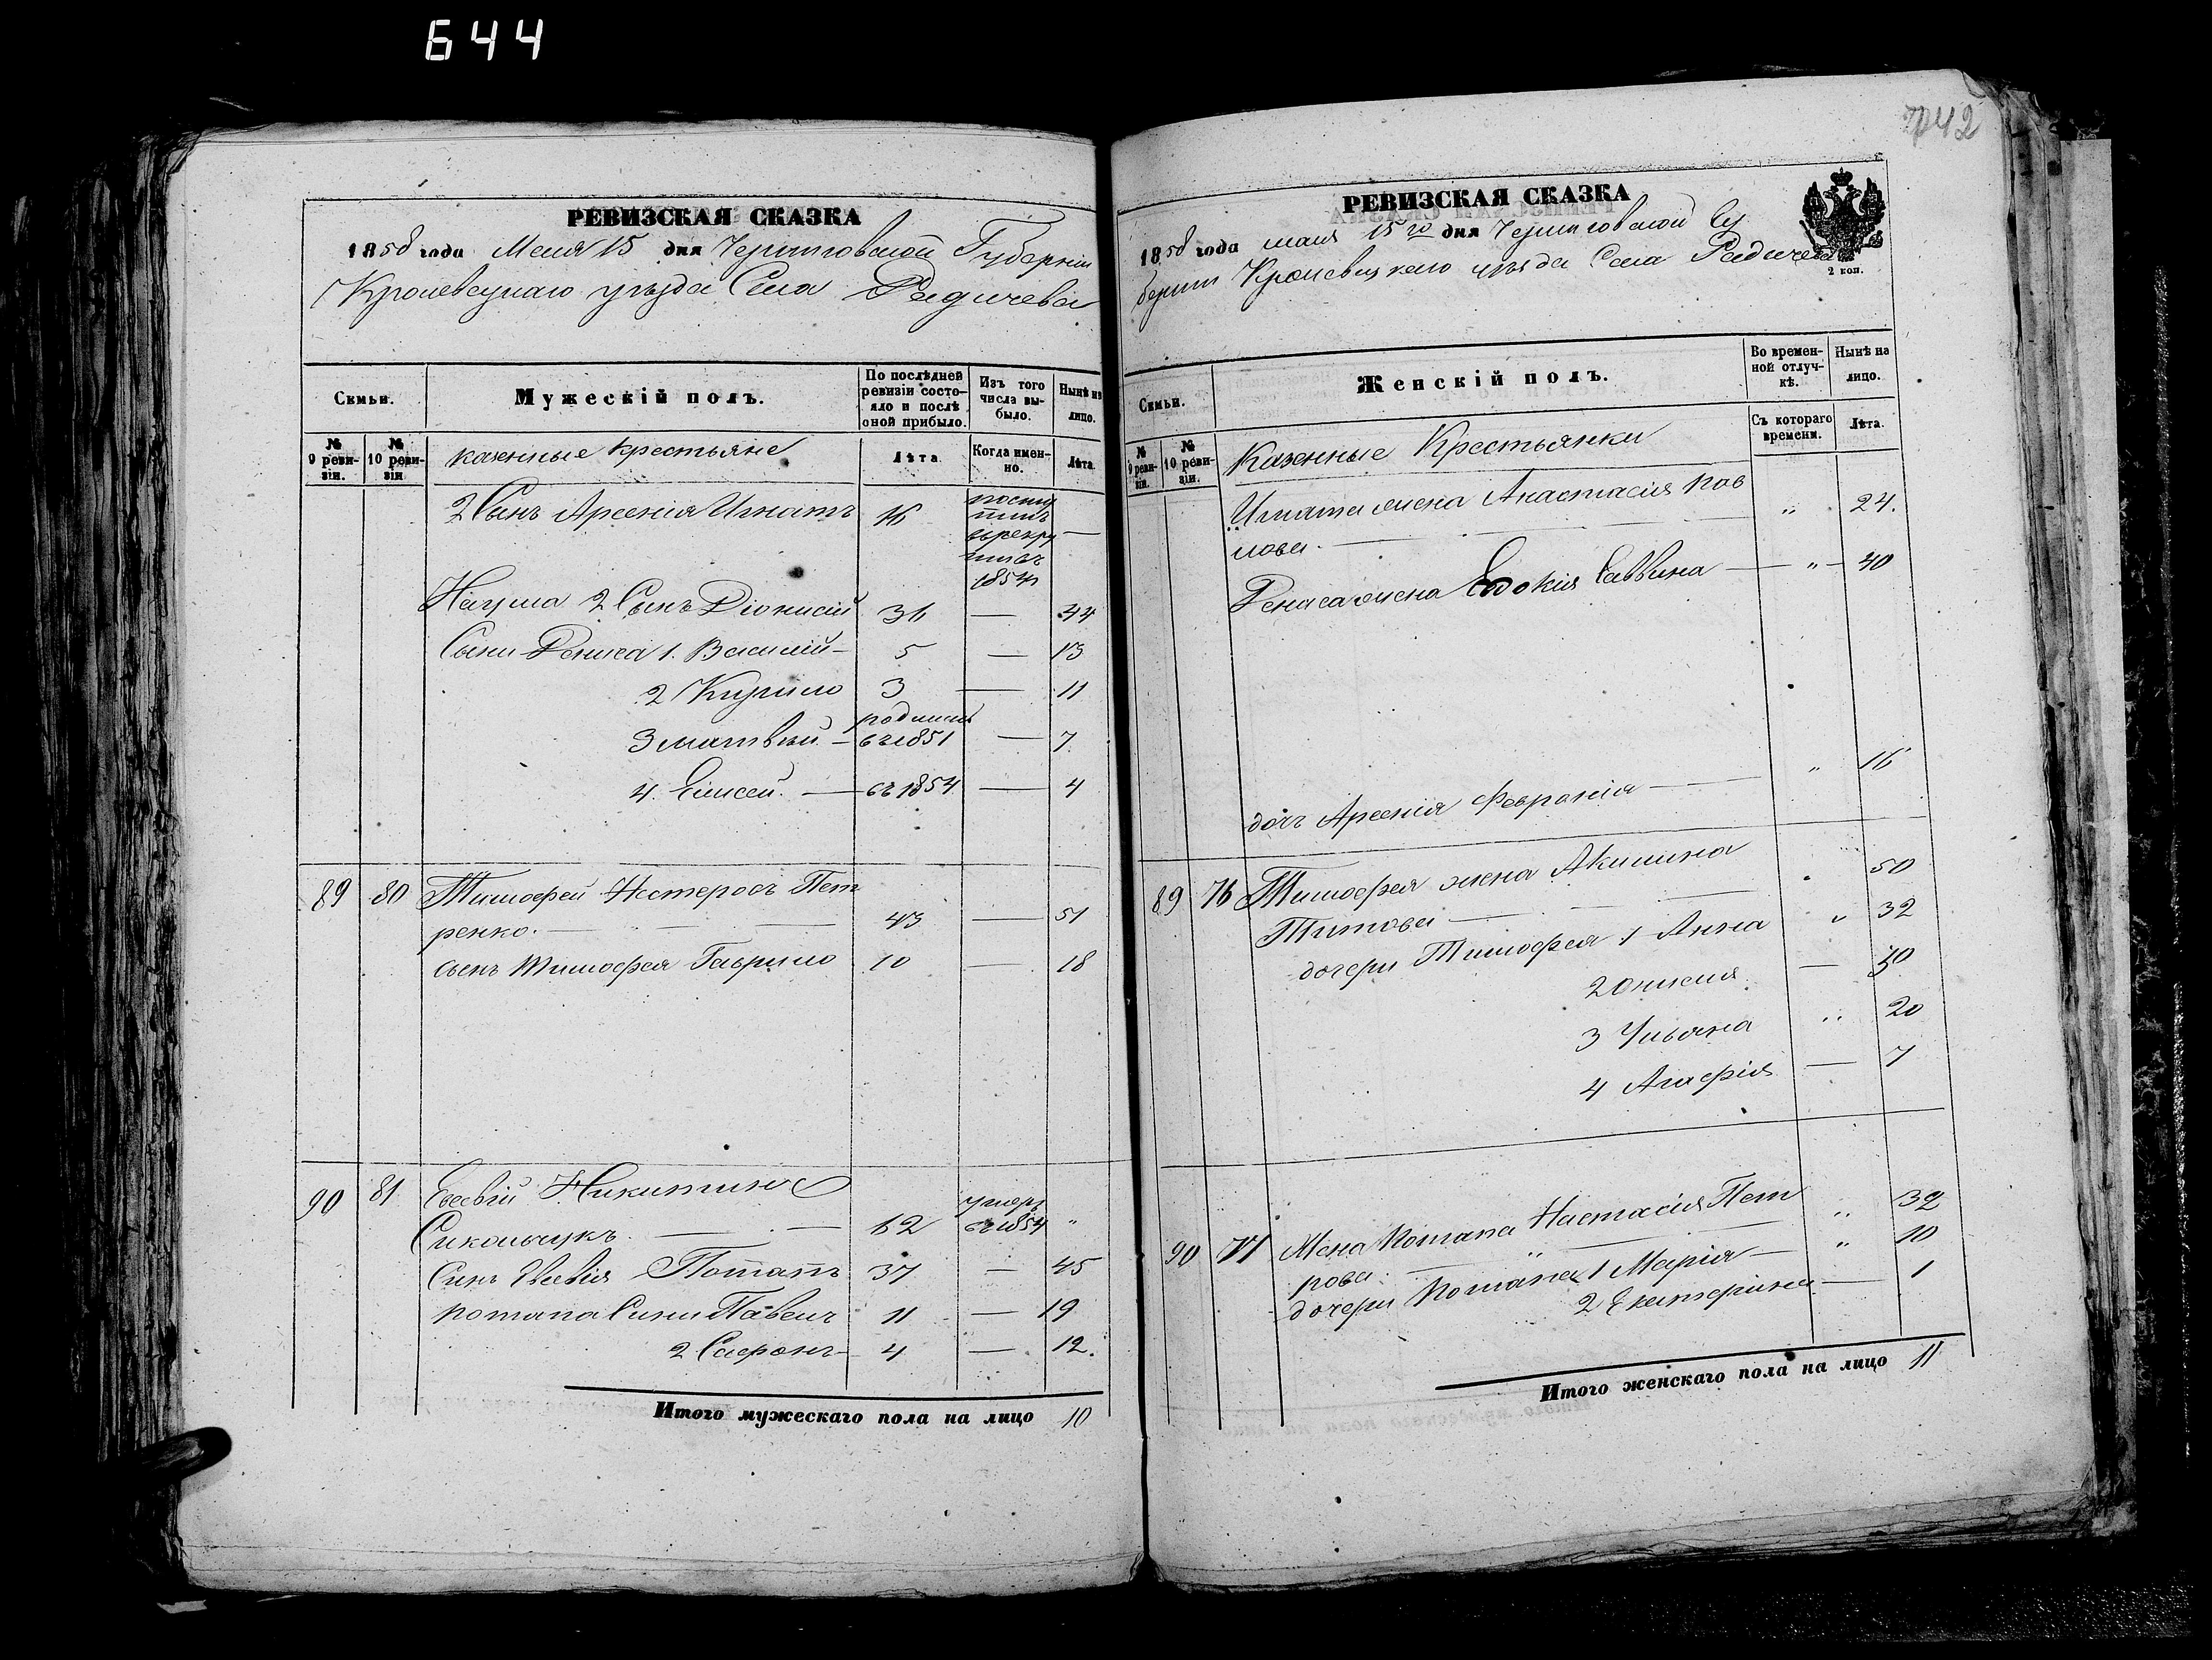 644
РЕВИЗСКАЯ СКАЗКА
1858 года Мая 15 дня Черниговской Губернии
Кролевецкаго уѣзда Села Радичева
Семьи.
Мужескій полъ.
По послѣдней ревизіи состояло и послѣ оной прибыло.
Изъ того числа выбыло.
Нынѣ на лицо.
№ 9 ревизіи.
№ 10 ревизіи.
казенные крестьяне
Лѣта.
Когда именно.
Лѣта.
2 Сынъ Арсенія Игнатъ 16 —
1854
Наума 2 Сынъ Діонисій 36 — 44
Сыни Дениса 1. Василій — 5 — 13
2 Кирило 3 — 11
3 Матвѣй — съ 1851 — 7.
4. Елисей. — съ 1854 — 4
89 80 Тимофей Нестеровъ Пет
ренко. — 43 — 51
сынъ Тимофея Гаврило 10 — 18
90 81 Евсевій Никитинъ
— 62 умеръ съ 1854 "
Синъ Евсевія Потапъ 37 — 45
Потапа Сини Павелъ 11 — 19
2 Сафронъ — 4 — 12.
Итого мужескаго пола на лицо 10
742
РЕВИЗСКАЯ СКАЗКА
1858 года мая 15го дня Черниговской Гу
берніи Кролевецкаго уѣзда Села Радичева
2 коп.
Семьи.
Женскій полъ.
Во временной отлучкѣ.
Нынѣ на лицо.
№ 9 ревизіи.
№ 10 ревизіи.
Казенные Крестьянки
Съ котораго времени.
Лѣта.
Игната жена Анастасія Пав
лова. — " 24.
Дениса жена Евдокія Саввина — " — 40
дочъ Арсенія Февронія — " 16
89 76 Тимофея жена Акилина
Титова — " 50
дочери Тимофея 1 Анна " 32
2 — 30
3 Ульяна " 20
4 Агафія — 7
90 77 Жена Потапа Настасія Пет
рова. — " 32
дочери Потапа 1 Марія — " 10
2 Екатерина — 1
Итого женскаго пола на лицо 11